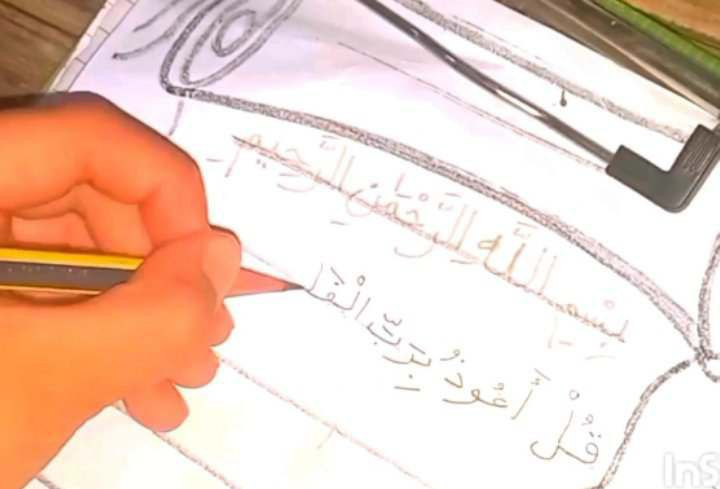 بِسْمِ اللَّهِ الرَّحْمَٰنِ الرَّحِيمِ
قُلْ أَعُوذُ بِرَبِّ الْفَلَ
InS